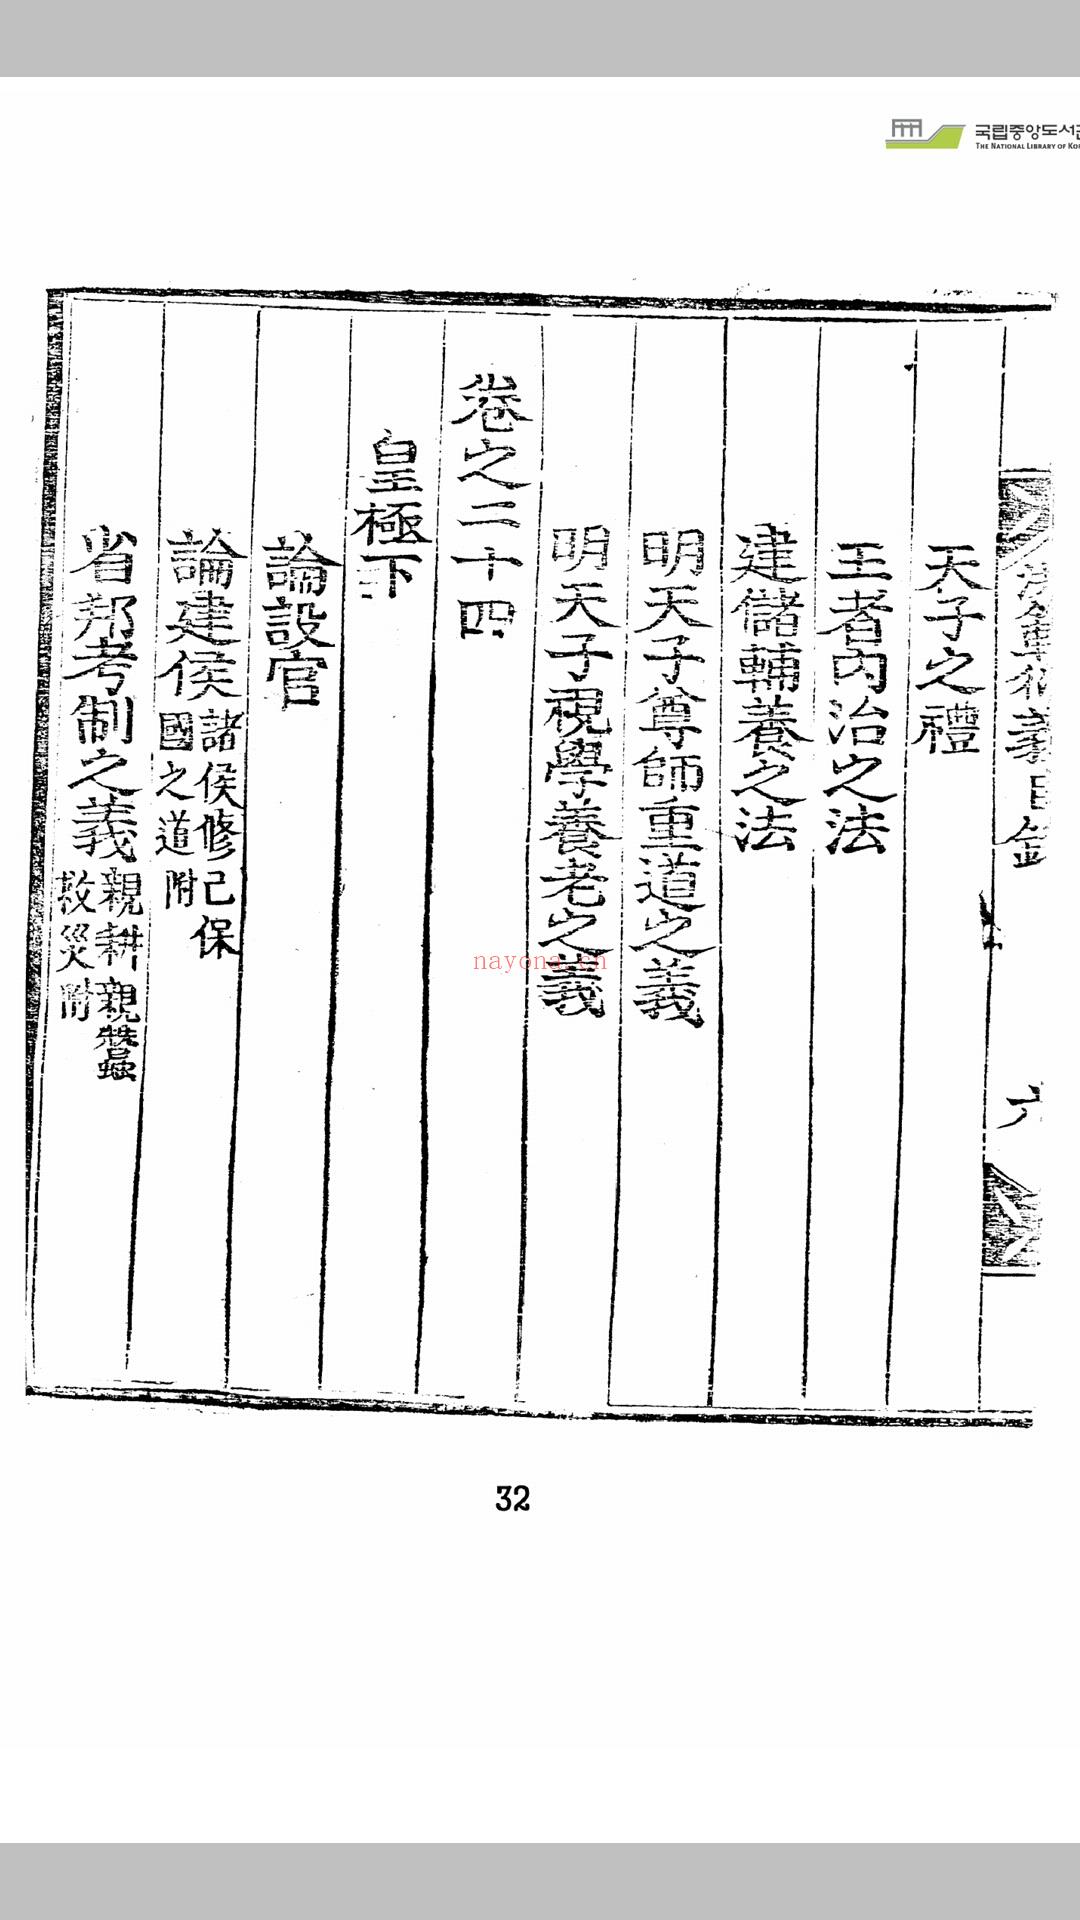 국립중앙도서
THE NATIONAL LIBRARY OF KO
義目錄
六
天子之禮
王者內治之法
建儲輔養之法
明天子尊師重道之義
明天子視學養老之義
卷之二十四
皇極下
論設官
論建侯 諸侯修己保
國之道附
省邦考制之義 親耕親蠶
救災附
nayona.cn
32